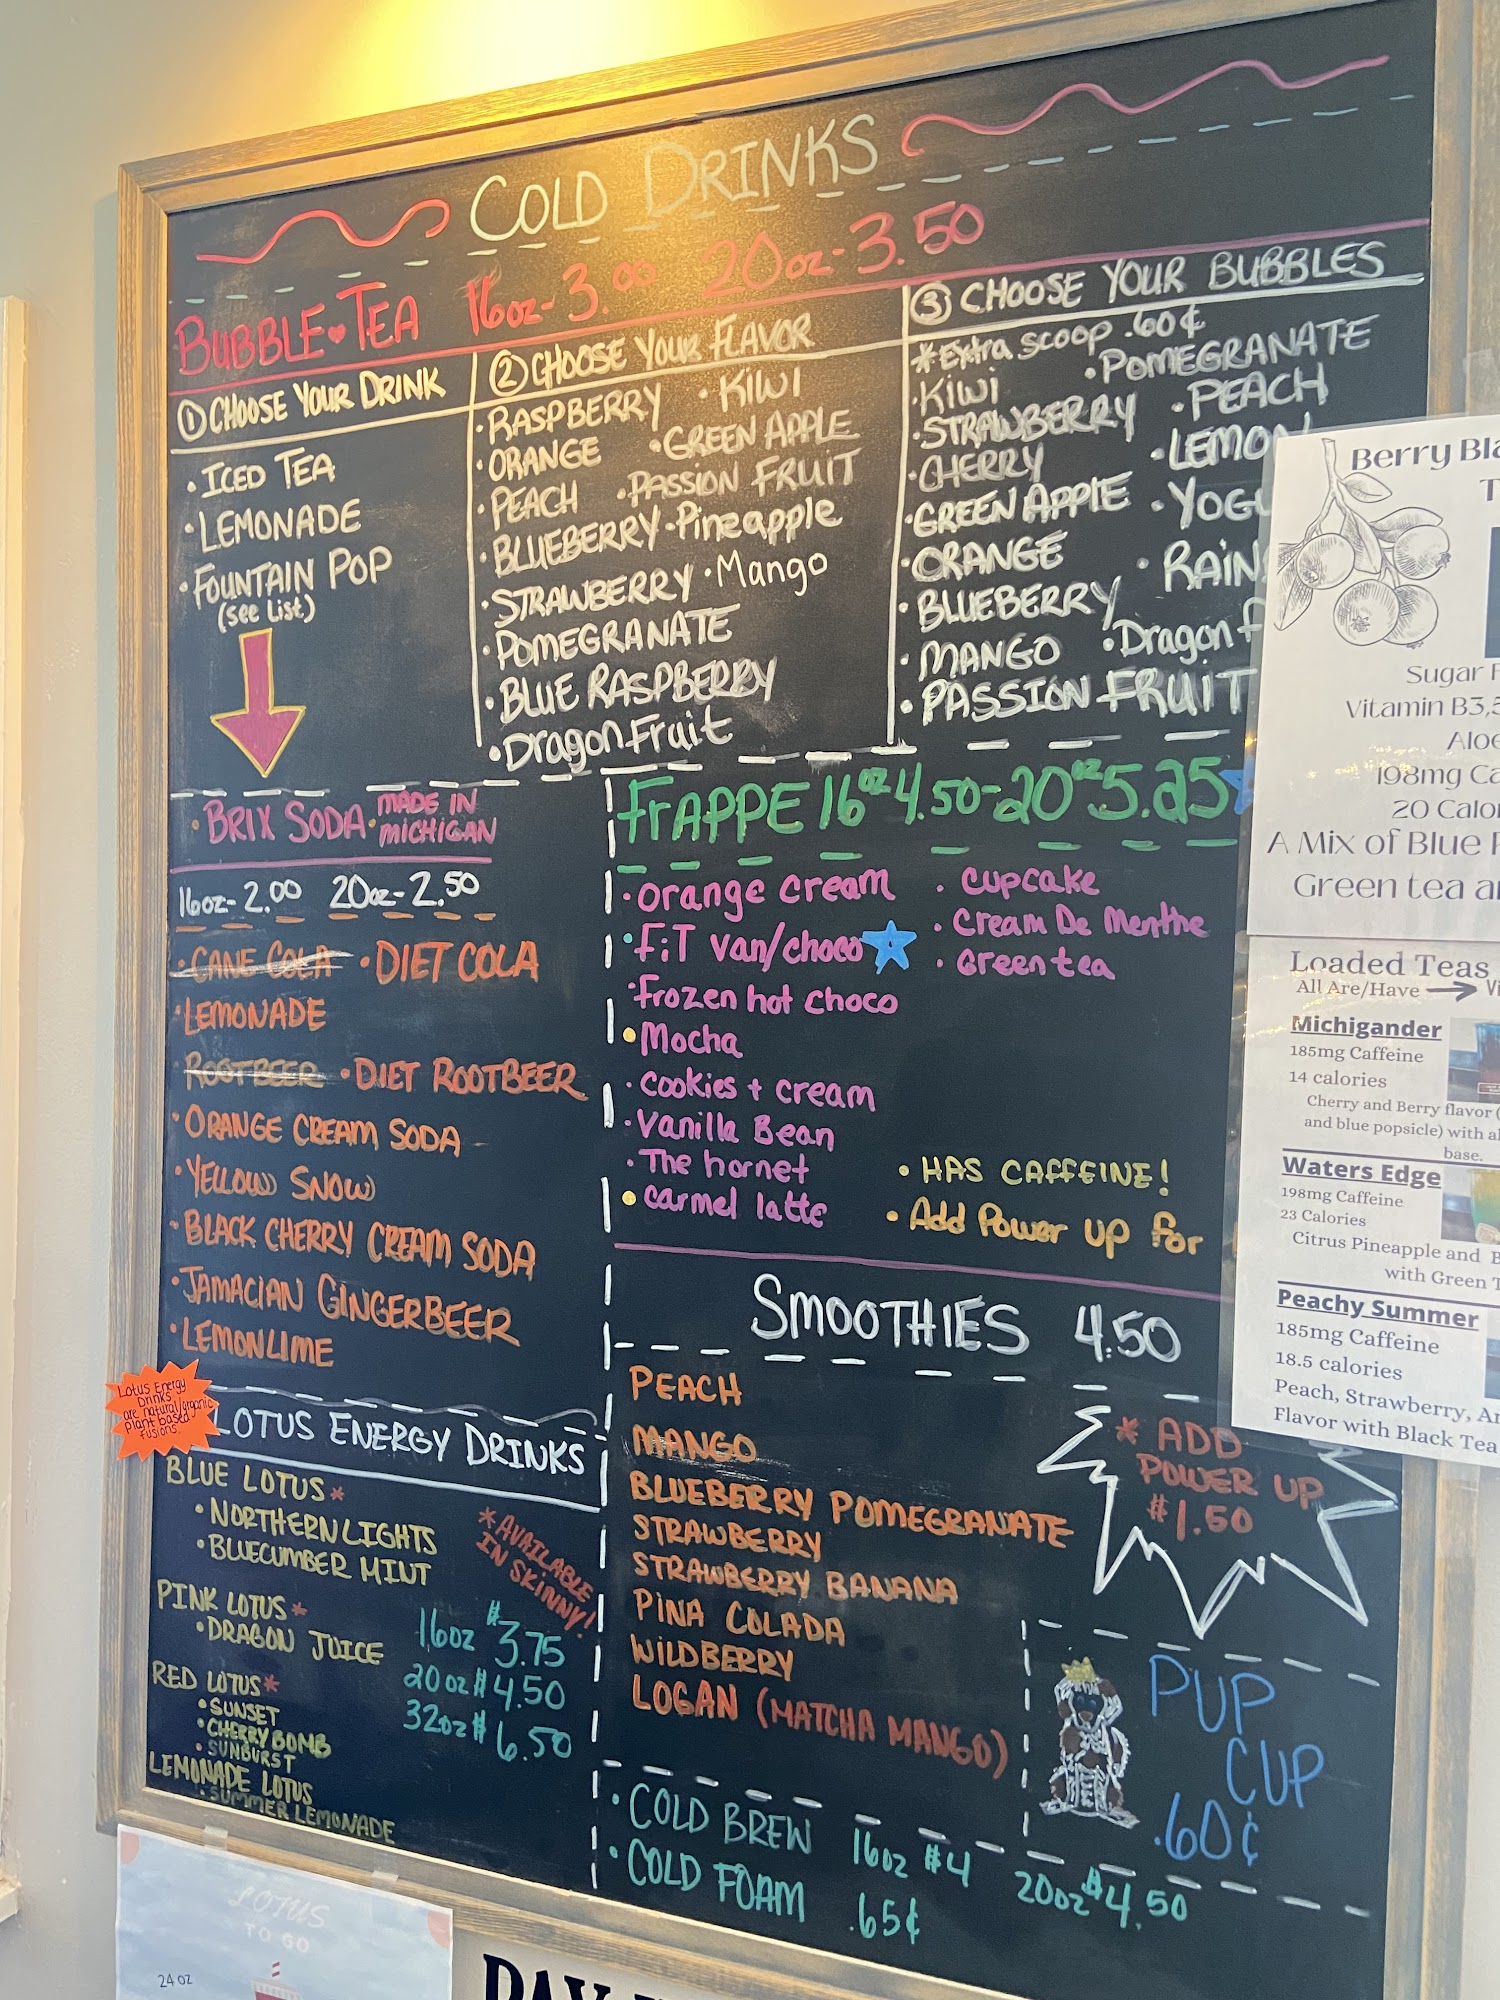 COLD DRINKS
BUBBLE TEA 16oz-3.00 20oz-3.50
① CHOOSE YOUR DRINK
• ICED TEA
• LEMONADE
• FOUNTAIN POP
(see List)
② CHOOSE YOUR FLAVOR
• RASPBERRY • KIWI
• ORANGE • GREEN APPLE
• PEACH • PASSION FRUIT
• BLUEBERRY • Pineapple
• STRAWBERRY • Mango
• POMEGRANATE
• BLUE RASPBERRY
• Dragon Fruit
③ CHOOSE YOUR BUBBLES
*Extra scoop .60¢
• KIWI • POMEGRANATE
• STRAWBERRY • PEACH
• CHERRY • LEMON
• GREEN APPLE
• ORANGE
• BLUEBERRY
• MANGO • Dragon
• PASSION FRUIT
• BRIX SODA • MADE IN
MICHIGAN
16oz-2.00 20oz-2.50
• CANE COLA • DIET COLA
• LEMONADE
• ROOTBEER • DIET ROOTBEER
• ORANGE CREAM SODA
• YELLOW SNOW
• BLACK CHERRY CREAM SODA
• JAMACIAN GINGERBEER
• LEMONLIME
FRAPPE 16oz 4.50-20oz 5.25
• orange cream • cupcake
• FiT van/choco • Cream De Menthe
• Frozen hot choco • Green tea
• Mocha
• cookies + cream
• Vanilla Bean
• The hornet
• carmel latte
• HAS CAFFEINE!
• Add Power up for
SMOOTHIES 4.50
PEACH
MANGO
BLUEBERRY POMEGRANATE
STRAWBERRY
STRAWBERRY BANANA
PINA COLADA
WILDBERRY
LOGAN (MATCHA MANGO)
* ADD
POWER UP
$1.50
Lotus Energy
Drinks
are natural/organic
plant based
fusions.
LOTUS ENERGY DRINKS
BLUE LOTUS*
• NORTHERN LIGHTS
• BLUECUMBER MINT
PINK LOTUS*
• DRAGON JUICE
RED LOTUS*
• SUNSET
• CHERRY BOMB
• SUNBURST
LEMONADE LOTUS
• SUMMER LEMONADE
*AVAILABLE
IN SKINNY!
16oz $3.75
20oz $4.50
32oz $6.50
PUP
CUP
.60¢
• COLD BREW 16oz $4 20oz $4.50
• COLD FOAM .65¢
Berry
Sugar
Vitamin B3,
198mg
20
A Mix of Blue
Green tea
Loaded Teas
All Are/Have →
Michigander
185mg Caffeine
14 calories
Cherry and Berry flavor (
and blue popsicle) with
base.
Waters Edge
198mg Caffeine
23 Calories
Citrus Pineapple and
with Green
Peachy Summer
185mg Caffeine
18.5 calories
Peach, Strawberry,
Flavor with Black Tea
LOTUS
TO GO
24 OZ